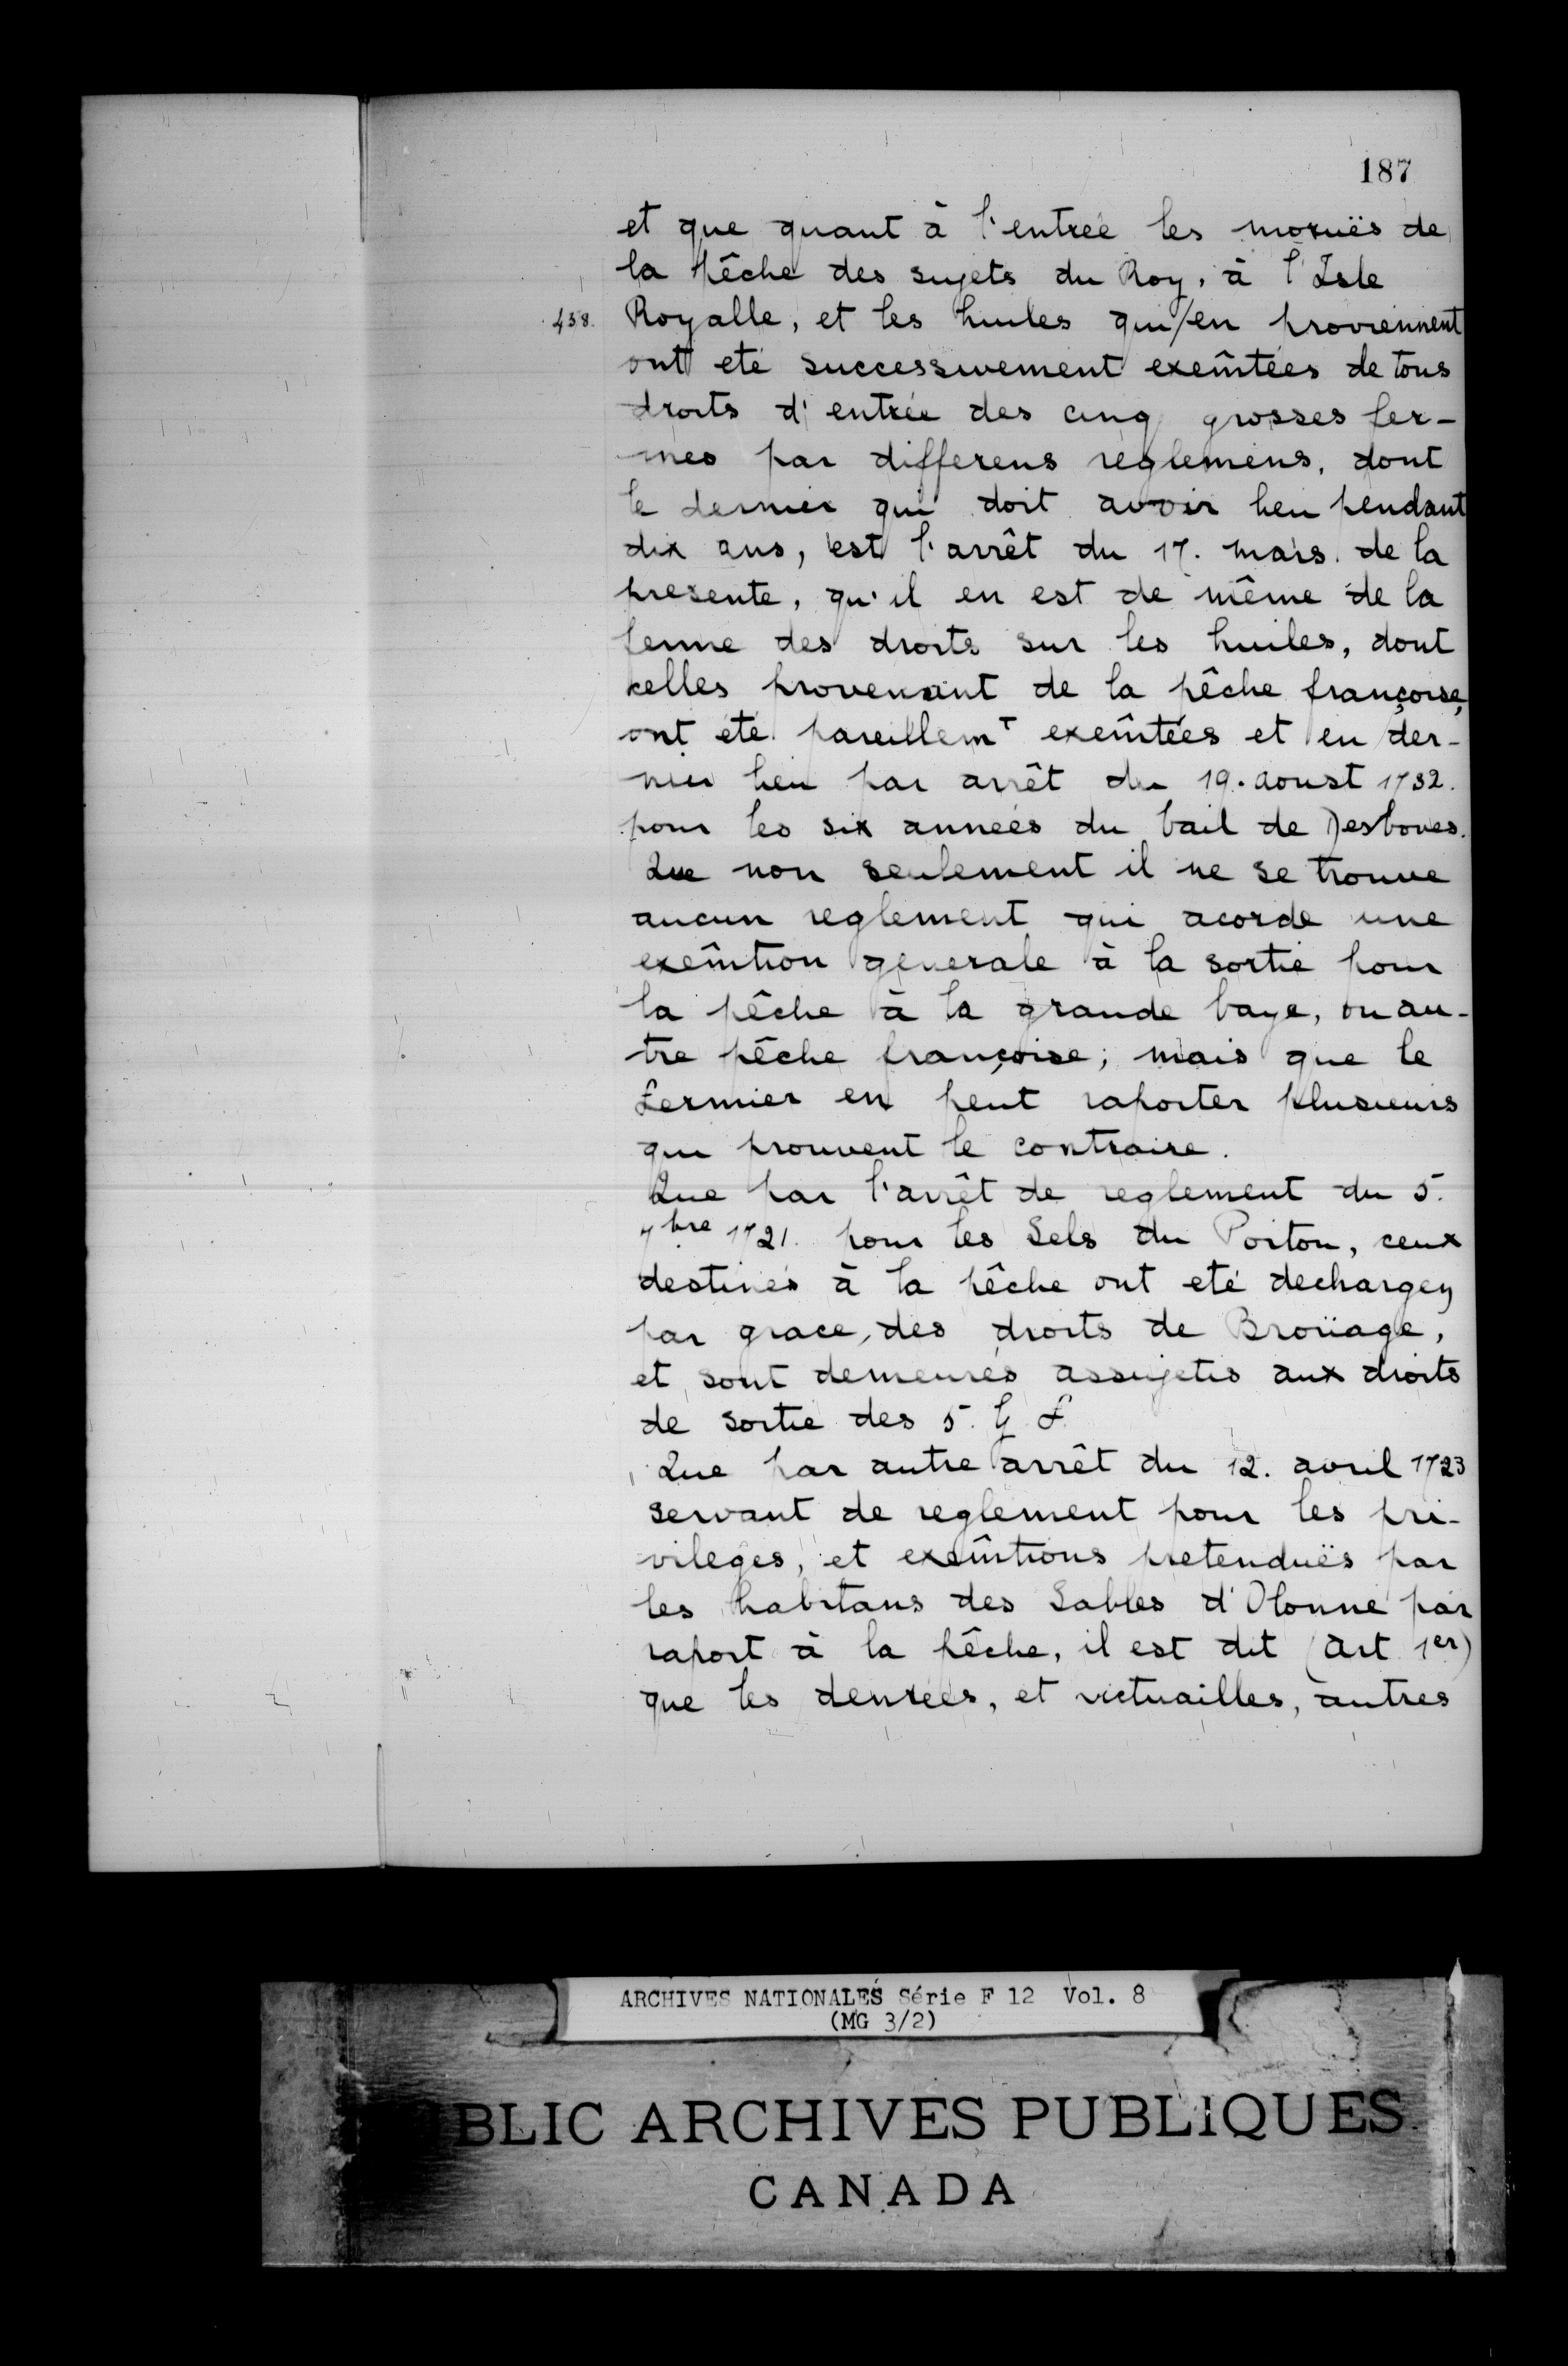 187
et que quant à l'entrée les moruës de
la pêche des sujets du Roy, à l'Isle
458. Royalle, et les huiles qui/en proviennent
ont eté successivement exemtées de tous
droits d'entrée des cinq grosses fer-
mes par differens reglemens, dont
le dernier qui doit avoir lieu pendant
dix ans, est l'arrêt du 17. mars. de la
presente, qu'il en est de même de la
ferme des droits sur les huiles, dont
celles provenant de la pêche françoise,
ont été pareillemt exemtées et en der-
nier lieu par arrêt du 19. aoust 1732.
pour les six années du bail de Desboves.
Que non seulement il ne se trouve
aucun reglement qui acorde une
exemtion generale à la sortie pour
la pêche à la grande baye, ou au-
tre pêche françoise; mais que le
fermier en peut raporter plusieurs
qui prouvent le contraire.
Que par l'arrêt de reglement du 5.
7bre 1721. pour les Sels du Poitou, ceux
destinés à la pêche ont eté dechargez
par grace, des droits de Broüage,
et sont demeurés assujetis aux droits
de sortie des 5. G. f.
Que par autre arrêt du 12. avril 1723
servant de reglement pour les pri-
vileges, et exemtions pretenduës par
les habitans des Sables d'Olonne par
raport à la pêche, il est dit (art 1er)
que les denrées, et victuailles, autres
ARCHIVES NATIONALES Série F 12 Vol. 8
(MG 3/2)
BLIC ARCHIVES PUBLIQUES
CANADA